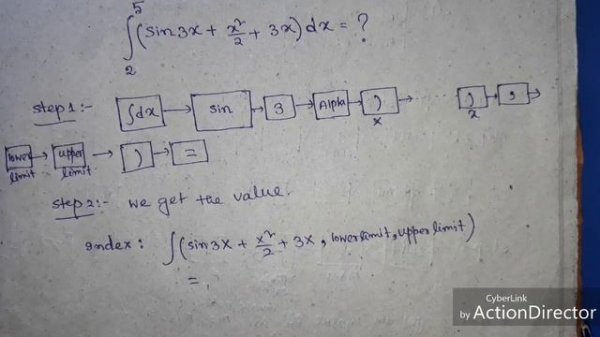 ∫₂⁵ (sin 3x + x²/2 + 3x) dx = ?
step 1 :- ∫dx → sin → 3 → Alpha → ) → ) → , →
x 2
lower → upper → ) → =
limit limit
step 2 :- we get the value.
Index : ∫(sin 3x + x²/2 + 3x , lower limit, upper limit)
=
CyberLink
by ActionDirector